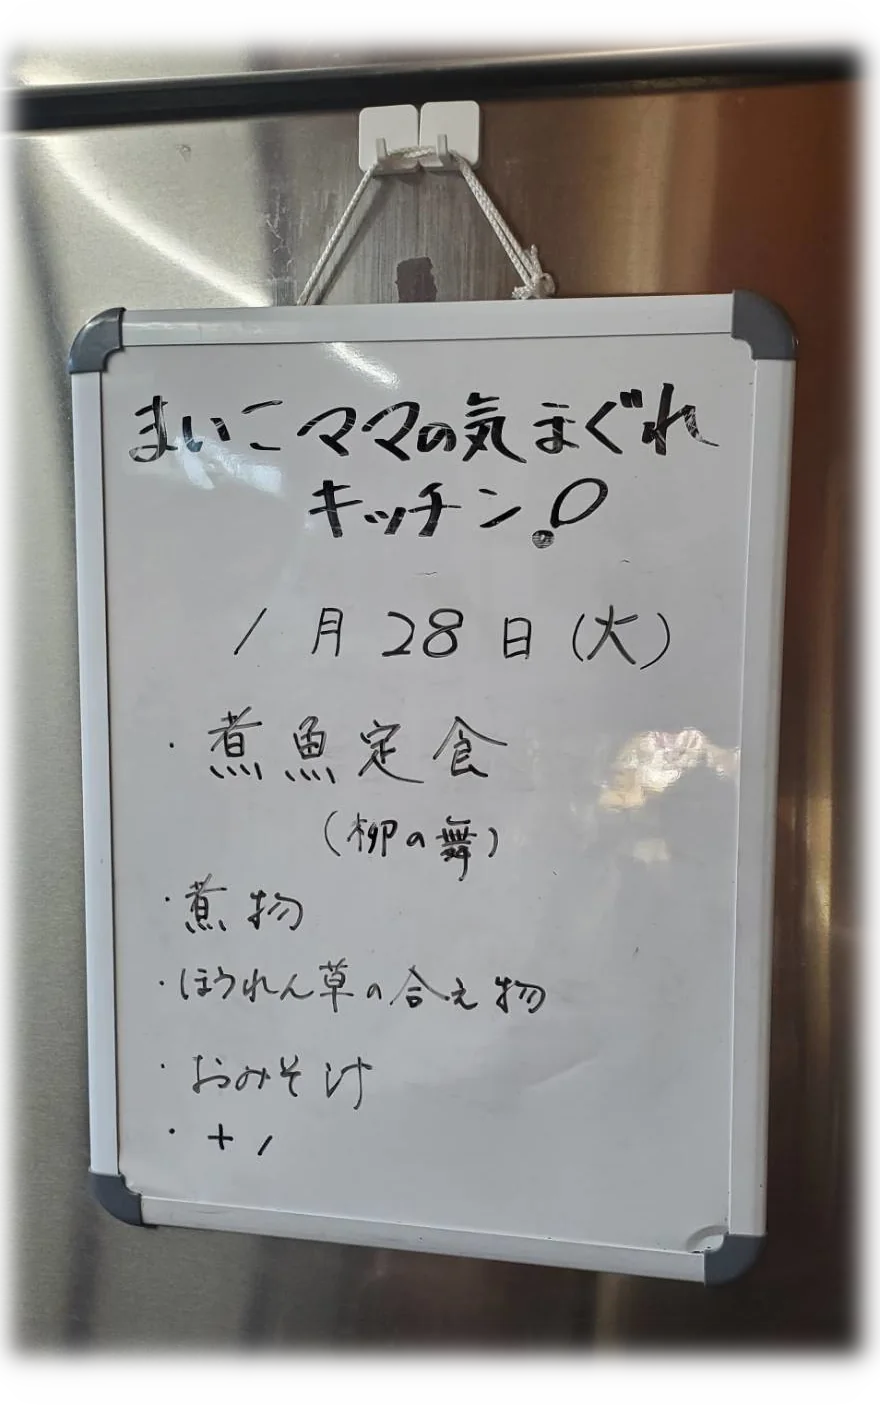 まいこママの気まぐれ
キッチン!
1月28日(火)
・煮魚定食
(柳の舞)
・煮物
・ほうれん草の合え物
・おみそ汁
・+1